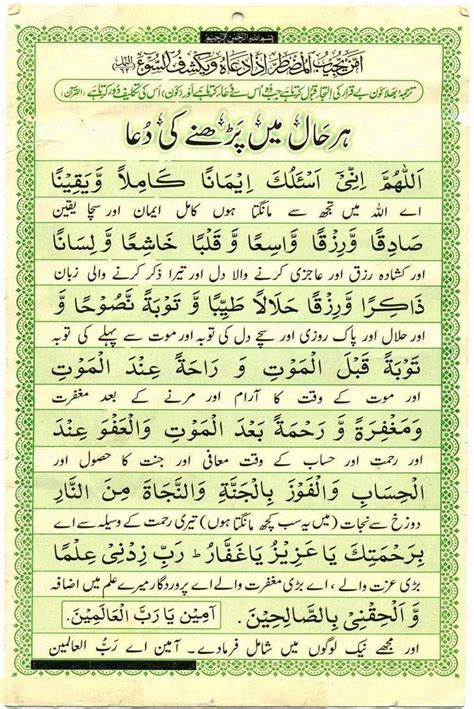 بسم الله الرحمن الرحيم
اَمَّنْ يُّجِيْبُ الْمُضْطَرَّ اِذَا دَعَاهُ وَيَكْشِفُ السُّوْٓءَ (النمل)
ترجمہ: بھلا کون بے قرار کی التجا قبول کرتا ہے جب وہ اُس سے دعا کرتا ہے اور (کون) اس کی تکلیف دور کرتا ہے (القرآن)
ہر حال میں پڑھنے کی دُعا
اَللّٰهُمَّ اِنِّیْٓ اَسْئَلُكَ اِيْمَانًا كَامِلاً وَّيَقِيْنًا
اے اللہ میں تجھ سے مانگتا ہوں کامل ایمان اور سچا یقین
صَادِقًا وَّرِزْقًا وَاسِعًا وَّ قَلْبًا خَاشِعًا وَّ لِسَانًا
اور کشادہ رزق اور عاجزی کرنے والا دل اور تیرا ذکر کرنے والی زبان
ذَاكِرًا وَّرِزْقًا حَلَالًا طَيِّبًا وَّ تَوْبَةً نَّصُوْحًا وَّ
اور حلال اور پاک روزی اور سچے دل کی توبہ اور موت سے پہلے کی توبہ
تَوْبَةً قَبْلَ الْمَوْتِ وَ رَاحَةً عِنْدَ الْمَوْتِ
اور موت کے وقت کا آرام اور مرنے کے بعد مغفرت
وَمَغْفِرَةً وَّ رَحْمَةً بَعْدَ الْمَوْتِ وَالْعَفْوَ عِنْدَ
اور رحمت اور حساب کے وقت معافی اور جنت کا حصول اور
الْحِسَابِ وَالْفَوْزَ بِالْجَنَّةِ وَالنَّجَاةَ مِنَ النَّارِ
دوزخ سے نجات (میں یہ سب کچھ مانگتا ہوں) تیری رحمت کے وسیلہ سے اے
بِرَحْمَتِكَ يَا عَزِيْزُ يَا غَفَّارُ ط رَبِّ زِدْنِیْ عِلْمًا
بڑی عزت والے، اے بڑی مغفرت والے اے پروردگار میرے علم میں اضافہ
وَّ اَلْحِقْنِیْ بِالصَّالِحِيْنَ۔ آمِيْن يَا رَبَّ الْعَالَمِيْنَ۔
اور مجھے نیک لوگوں میں شامل فرمادے۔ آمین اے ربُّ العالمین